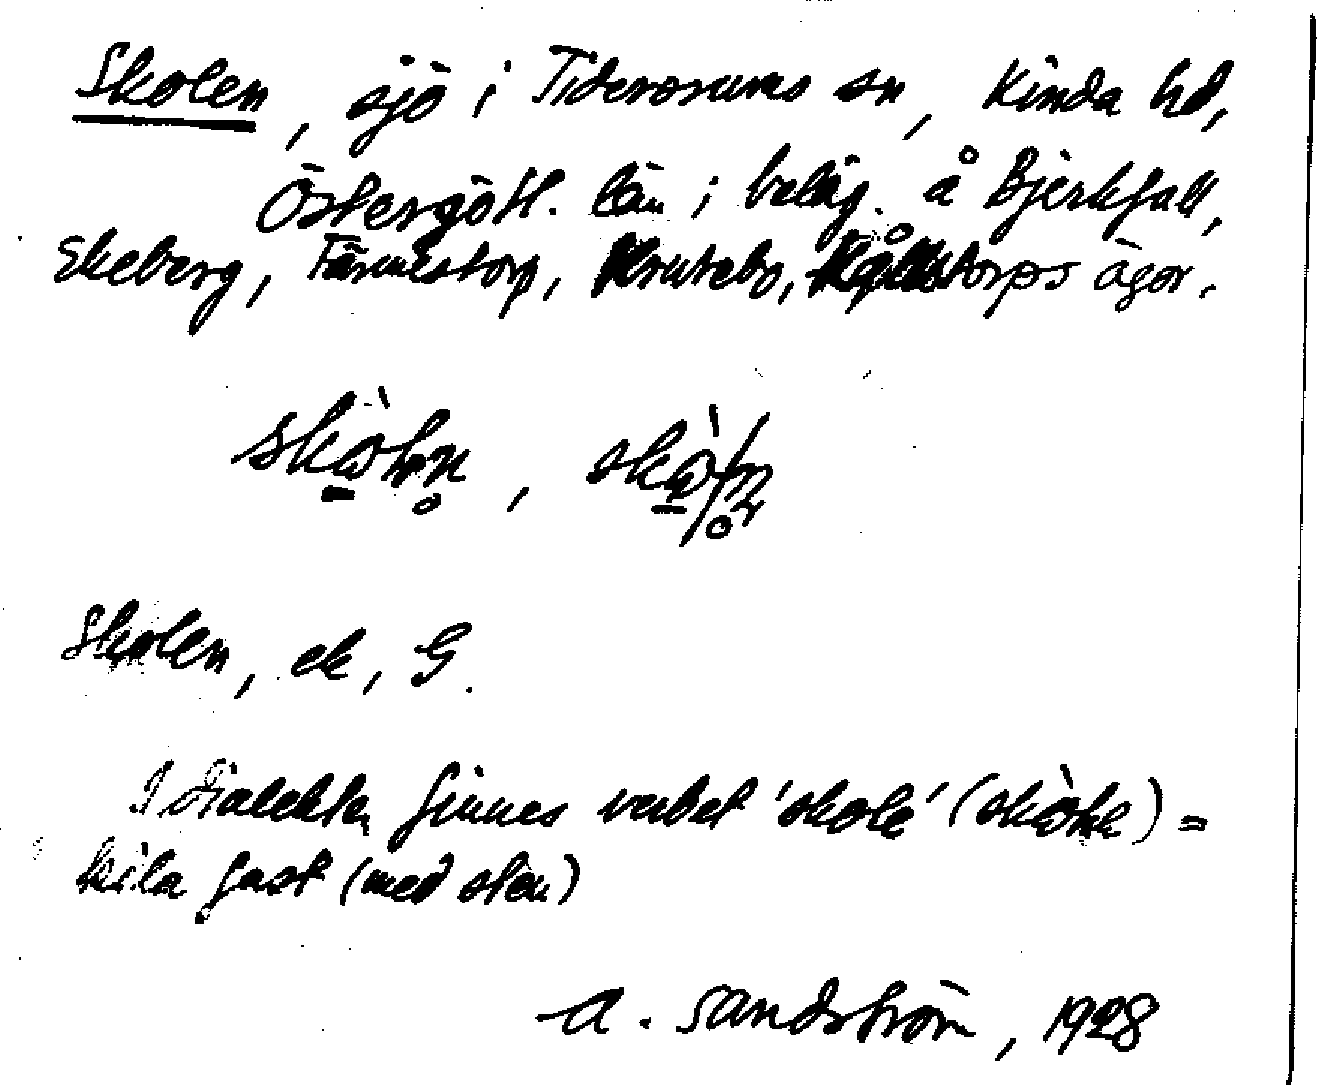 Skolen, sjö i Tidersrums sn, Kinda hd,
Östergötl. län; beläg. å Bjerkfall,
Ekeberg, Färnnestorp, Knutebo, torps ägor.
Skolen, ek, G.
I dialekten finnes verbet 'skola' =
kila fast (med sten)
A. Sandström, 1928